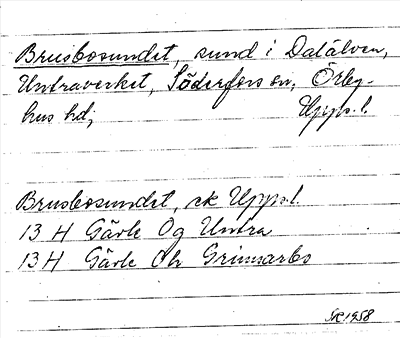 Brusbosundet, sund i Dalälven,
Untraverket, Söderfors sn, Örby-
hus hd; Upps. l.
Brusbosundet, ek Upps.l.
13 H Gävle Og Untra
13 H Gävle Oh Grinnarbo
1958